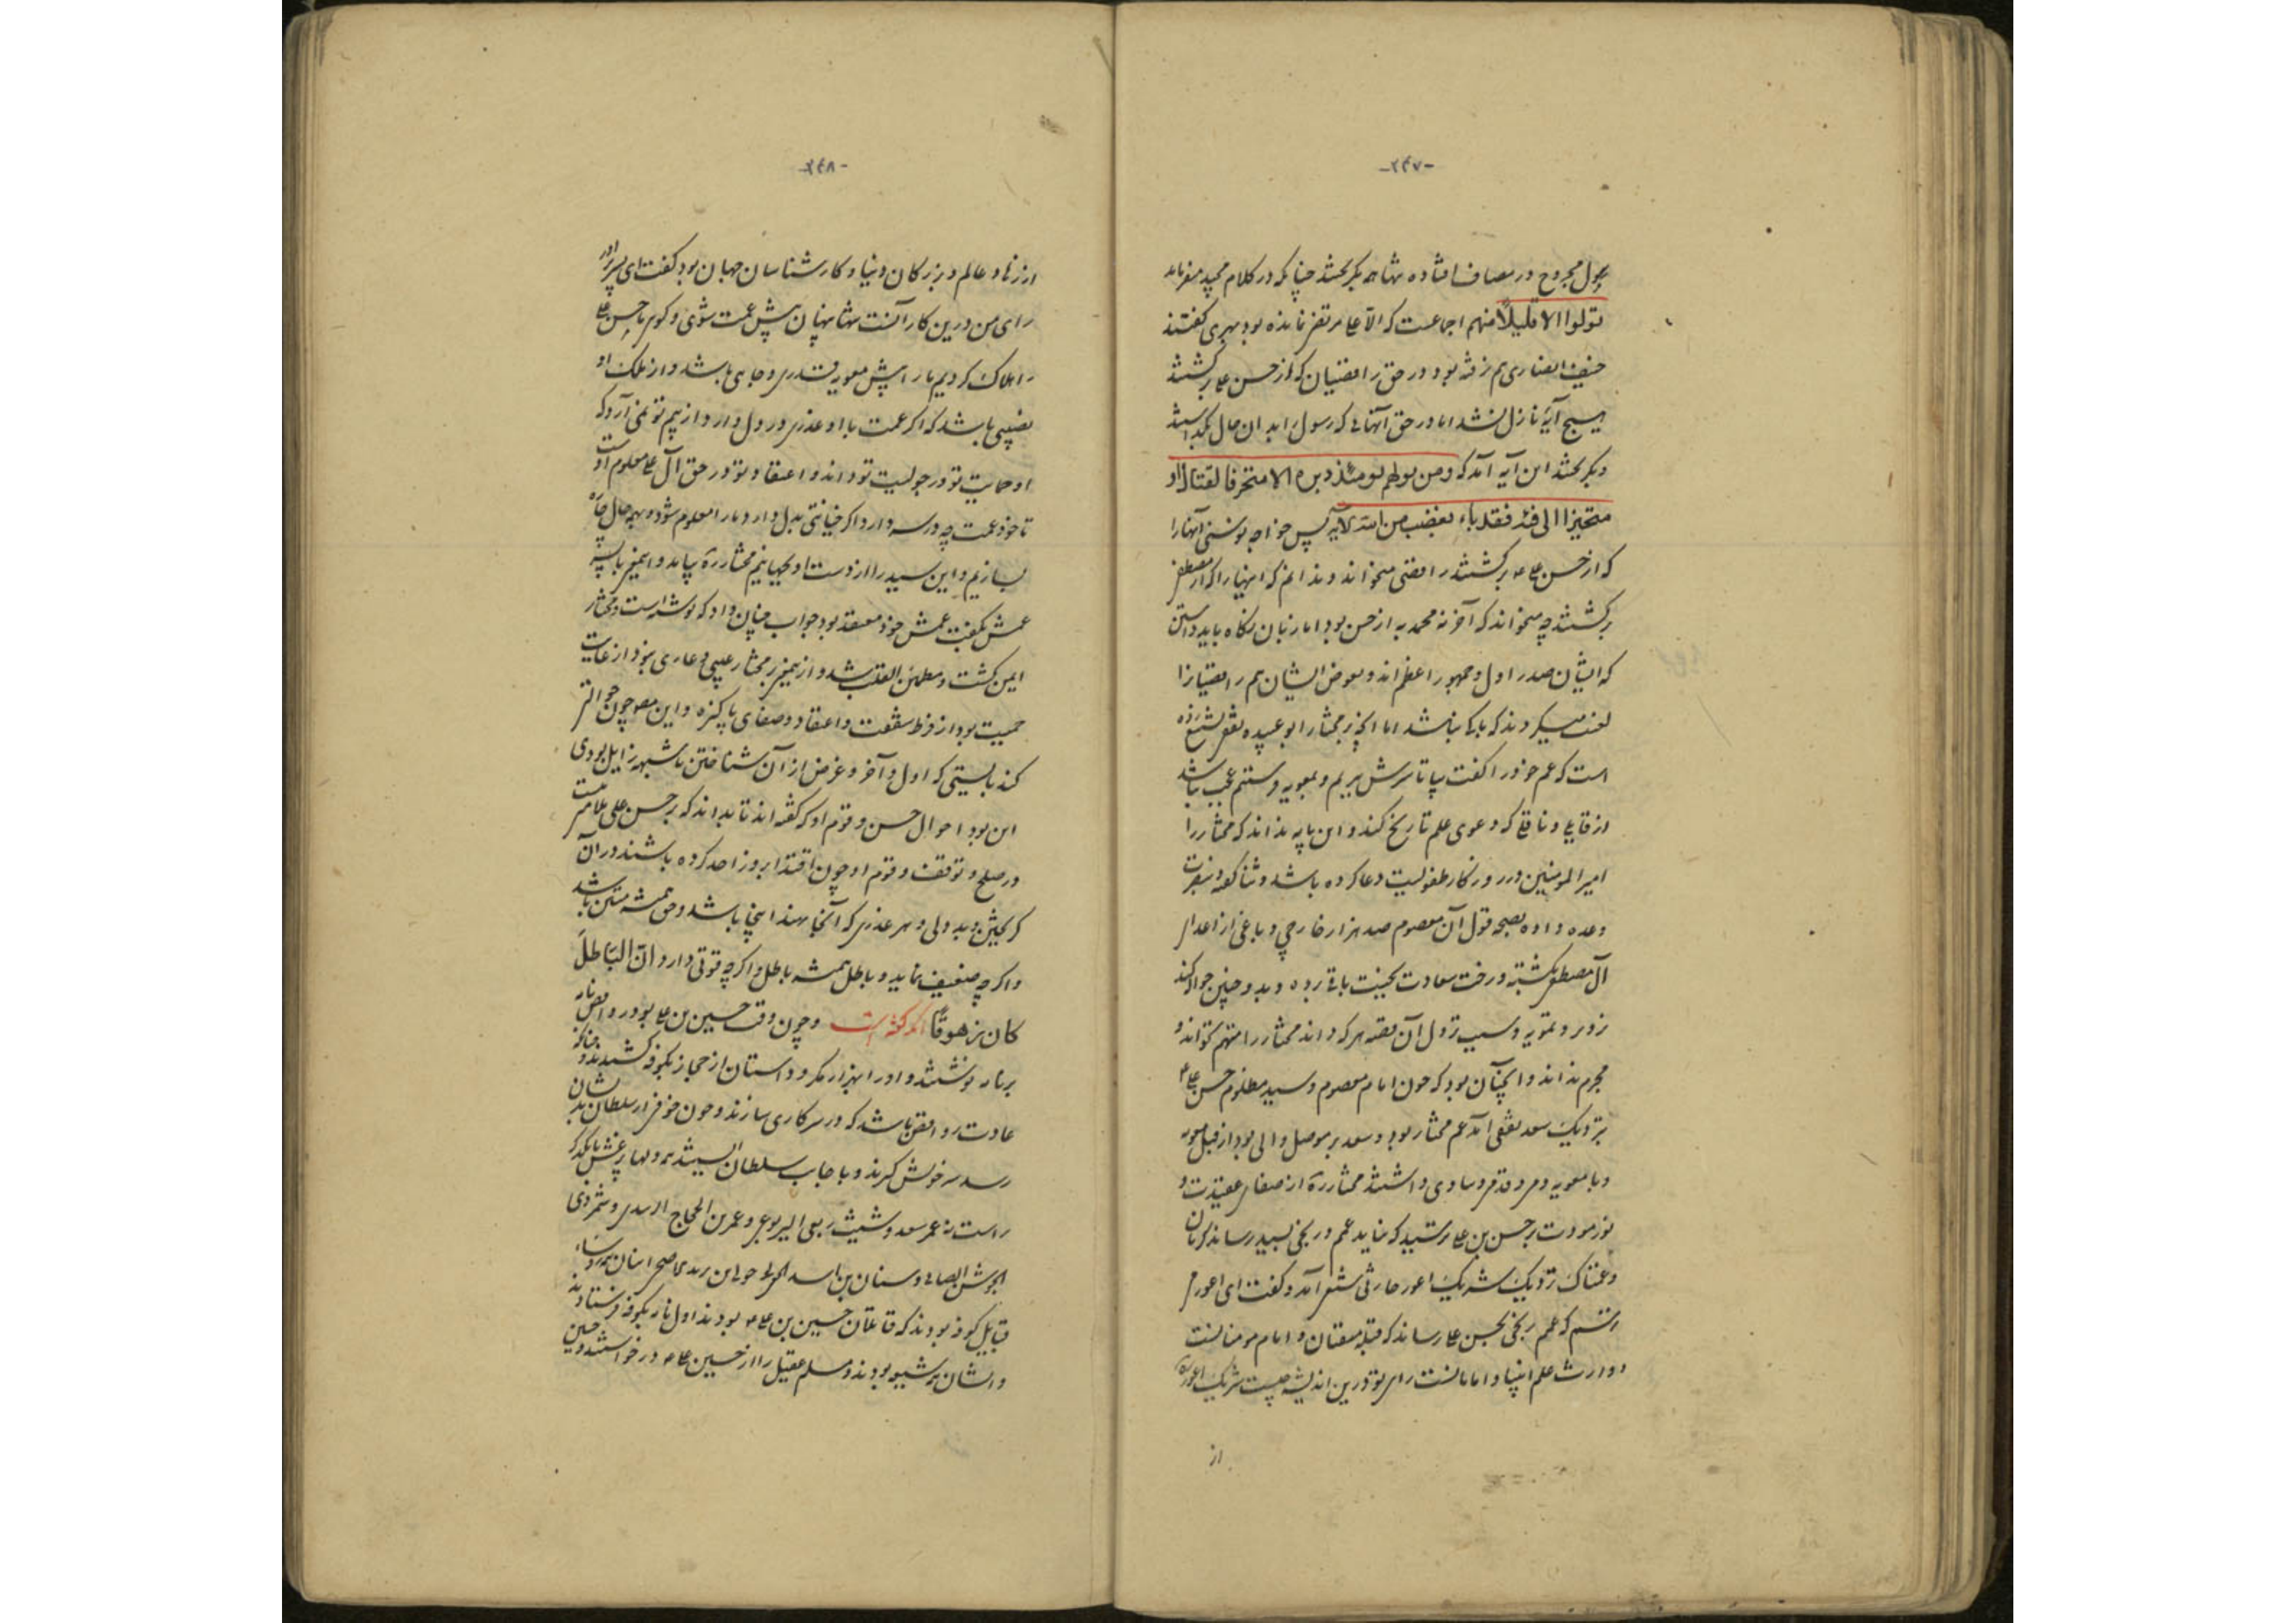 -۲۴۷-
رسول مجروح در مصاف افتاده تنها همه بگریختند چنانکه در کلام مجید میفرماید
تولوا الا قلیلاً منهم اجماعست که الا علی مرتضی نمانده بود مهری گفتند
حنیف انصاری هم نرفته بود و در حق رافضیان که از حسن علی برگشتند
هیچ آیة نازل نشد اما در حق آنهائی که رسول را بدان حال بگذاشتند
و بگریختند این آیه آمد که ومن یولهم یومئذ دبره الا متحرفا لقتال او
متحیزا الی فئة فقد باء بغضب من الله الآیه پس خواجه بوسنی آنها را
که از حسن علی ع برگشتند رافضی میخواند و ندانم که اینها را که از مصطفی
برگشتند چه میخواند که آخر نه محمد به از حسن بود اما زبان نگاه باید داشتن
که ایشان صدر اول و جمهور اعظم‌اند و بعوض ایشان هم رافضیانرا
لعنت میکردند که باکی نباشد اما آنچه بر مختار ابو عبیده ثقفی تشنیع زده
است که عم خود را گفت بیا تا سرش ببریم و بمعویه فرستیم عجب باشد
از قایلی و ناقلی که دعوی علم تاریخ کند و این مایه نداند که مختار را
امیرالمؤمنین در روزگار طفولیت دعا کرده باشد و ثنا گفته و بنصرت
وعده داده بصحه قول آن معصوم صد هزار خارجی و باغی از اعدای
آل مصطفی بکشته و رخت سعادت بجنت باقی برده و بدو چنین حواله کند
زور و تمویه و سبب نزول آن قصه هر که داند مختار را متهم نتواند و
مجرم نداند و آنچنان بود که چون امام معصوم و سید مظلوم حسن علی ع
بنزدیک سعد ثقفی آمد عم مختار بود و سعد بر موصل والی بود از قبل معویه
و با معویه دمی و قدمی و مداوی داشتند مختار ره از صفای عقیدت و
نور مودت بر حسن بن علی بترسید که نباید عم او رنجی بسید رساند گریان
و غمناک نزدیک شریک اعور حارثی شیعی آمد و گفت ای اعور می
ترسم که عمم رنجی بحسن علی رساند که قبله متقیان و امام مومنانست
و وارث علم انبیا و امامانست رای تو درین اندیشه چیست شریک اعور ره
از
-۲۴۸-
از زهاد عالم و بزرگان دنیا و کارشناسان جهان بود گفت ای پسر برادر
رای من درین کار آنست تنها پنهان پیش عمت شوی و گوی بیا حسن علی
را هلاک کردیم ما را پیش معویه قدری و جاهی باشد و از ملک او
نصیبی باشد که اگر عمت با او غدری در دل دارد از بیم تو نمی‌آرد که
او حمایت تو در جولیت تو داند و اعتقاد تو در حق آل علی معلوم اوست
تا خود عمت چه در سر دارد اگر خیانتی بدل دارد ما را معلوم شود و بهمه حال چاره
بسازیم و این سید را از دست او بجهانیم مختار ره بیامد و اینمعنی با
عمش بگفت عمش خود معتقد بود جواب چنان داد که نوشته است و مختار
ایمن گشت و مطمئن القلب شد و از اینمعنی بر مختار عیبی و عاری نبود از غایت
حمیت بود از فرط شفقت و اعتقاد و صفای پاکیزه و این مصنف چون حوالتی
کند بایستی که اول و آخر و غرض از آن شناختن تا شبهه زایل بودی
این بود احوال حسن و قوم او که گفته‌اند تا بداند که بر حسن علی ملامت نیست
در صلح و توقف و قوم او چون اقتدا بروز احد کرده باشند در آن
گریختن و بددلی و هر عذری که آنجا نهند اینجا باشد و حق همیشه متین باشد
و اگر چه ضعیف نماید و باطل همیشه باطل و اگر چه قوتی دارد انّ الباطل
کان زهوقاً آنکه گفته است و چون وقت حسین بن علی بود روافض نامه
بر نامه نوشتند و او را بهزار مکر و دستان از حجاز بکوفه کشیدند و چنانکه
عادت روافض باشد که در سر کاری سازند و چون خوف از سلطان بدیشان
رسد سر خویش گیرند و با جانب سلطان ایستند همه و لها بر غش با یکدیگر
راست نه عمر سعد و شیث ربعی الیربوعی و عمر بن الحجاج الزبیدی و شمر ذی
الجوشن الضبابی و سنان بن انس النخعی و خولی بن یزید الاصبحی اینان همه رؤساء
قبایل کوفه بودند که قاتلان حسین بن علی ع بودند اول نامه بکوفه فرستادند
و ایشان همه شیعه بودند و مسلم عقیل را از حسین علی ع درخواستند و حسین